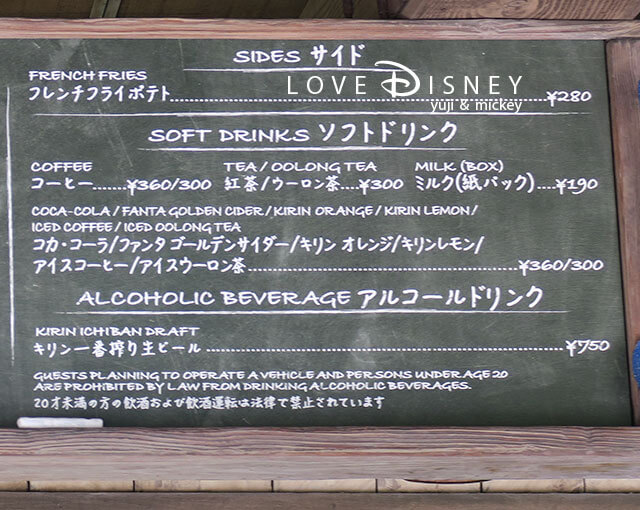 SIDES サイド
LOVE DISNEY
yuji & mickey
FRENCH FRIES
フレンチフライポテト....................¥280
SOFT DRINKS ソフトドリンク
COFFEE
コーヒー.......¥360/300
TEA / OOLONG TEA
紅茶/ウーロン茶....¥300
MILK (BOX)
ミルク(紙パック)....¥190
COCA-COLA / FANTA GOLDEN CIDER / KIRIN ORANGE / KIRIN LEMON /
ICED COFFEE / ICED OOLONG TEA
コカ・コーラ/ファンタ ゴールデンサイダー/キリン オレンジ/キリンレモン/
アイスコーヒー/アイスウーロン茶....................¥360/300
ALCOHOLIC BEVERAGE アルコールドリンク
KIRIN ICHIBAN DRAFT
キリン一番搾り生ビール....................¥750
GUESTS PLANNING TO OPERATE A VEHICLE AND PERSONS UNDER AGE 20
ARE PROHIBITED BY LAW FROM DRINKING ALCOHOLIC BEVERAGES.
20才未満の方の飲酒および飲酒運転は法律で禁止されています